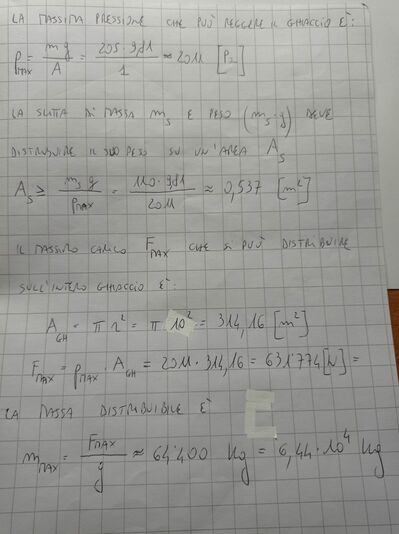 LA MASSIMA PRESSIONE CHE PUÒ REGGERE IL GHIACCIO È:
P_MAX = m g / A = 205 · 9,81 / 1 ≈ 2011 [Pa]
LA SLITTA DI MASSA m_s E PESO (m_s · g) DEVE
DISTRIBUIRE IL SUO PESO SU UN'AREA A_S
A_S ≥ m_s g / P_MAX = 110 · 9,81 / 2011 ≈ 0,537 [m²]
IL MASSIMO CARICO F_MAX CHE SI PUÒ DISTRIBUIRE
SULL'INTERO GHIACCIO È:
A_GH = π r² = π 10² = 314,16 [m²]
F_MAX = P_MAX · A_GH = 2011 · 314,16 = 631'774 [N] =
LA MASSA DISTRIBUIBILE È
m_MAX = F_MAX / g ≈ 64'400 Kg = 6,44 · 10⁴ Kg